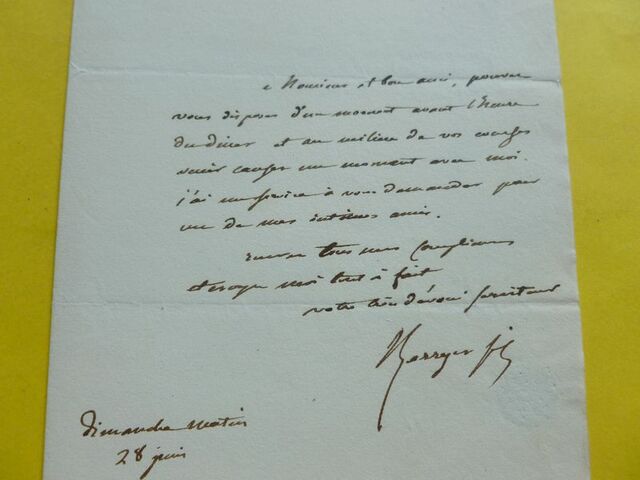 Monsieur et bon ami, pouvez
vous disposer d'un moment avant l'heure
du diner et au milieu de vos courses
venir causer un moment avec moi.
j'ai un service à vous demander pour
un de mes intimes amis.
tous mes complimens
et croyez moi tout à fait
votre très dévoué serviteur
Berryer fils
dimanche matin
28 juin